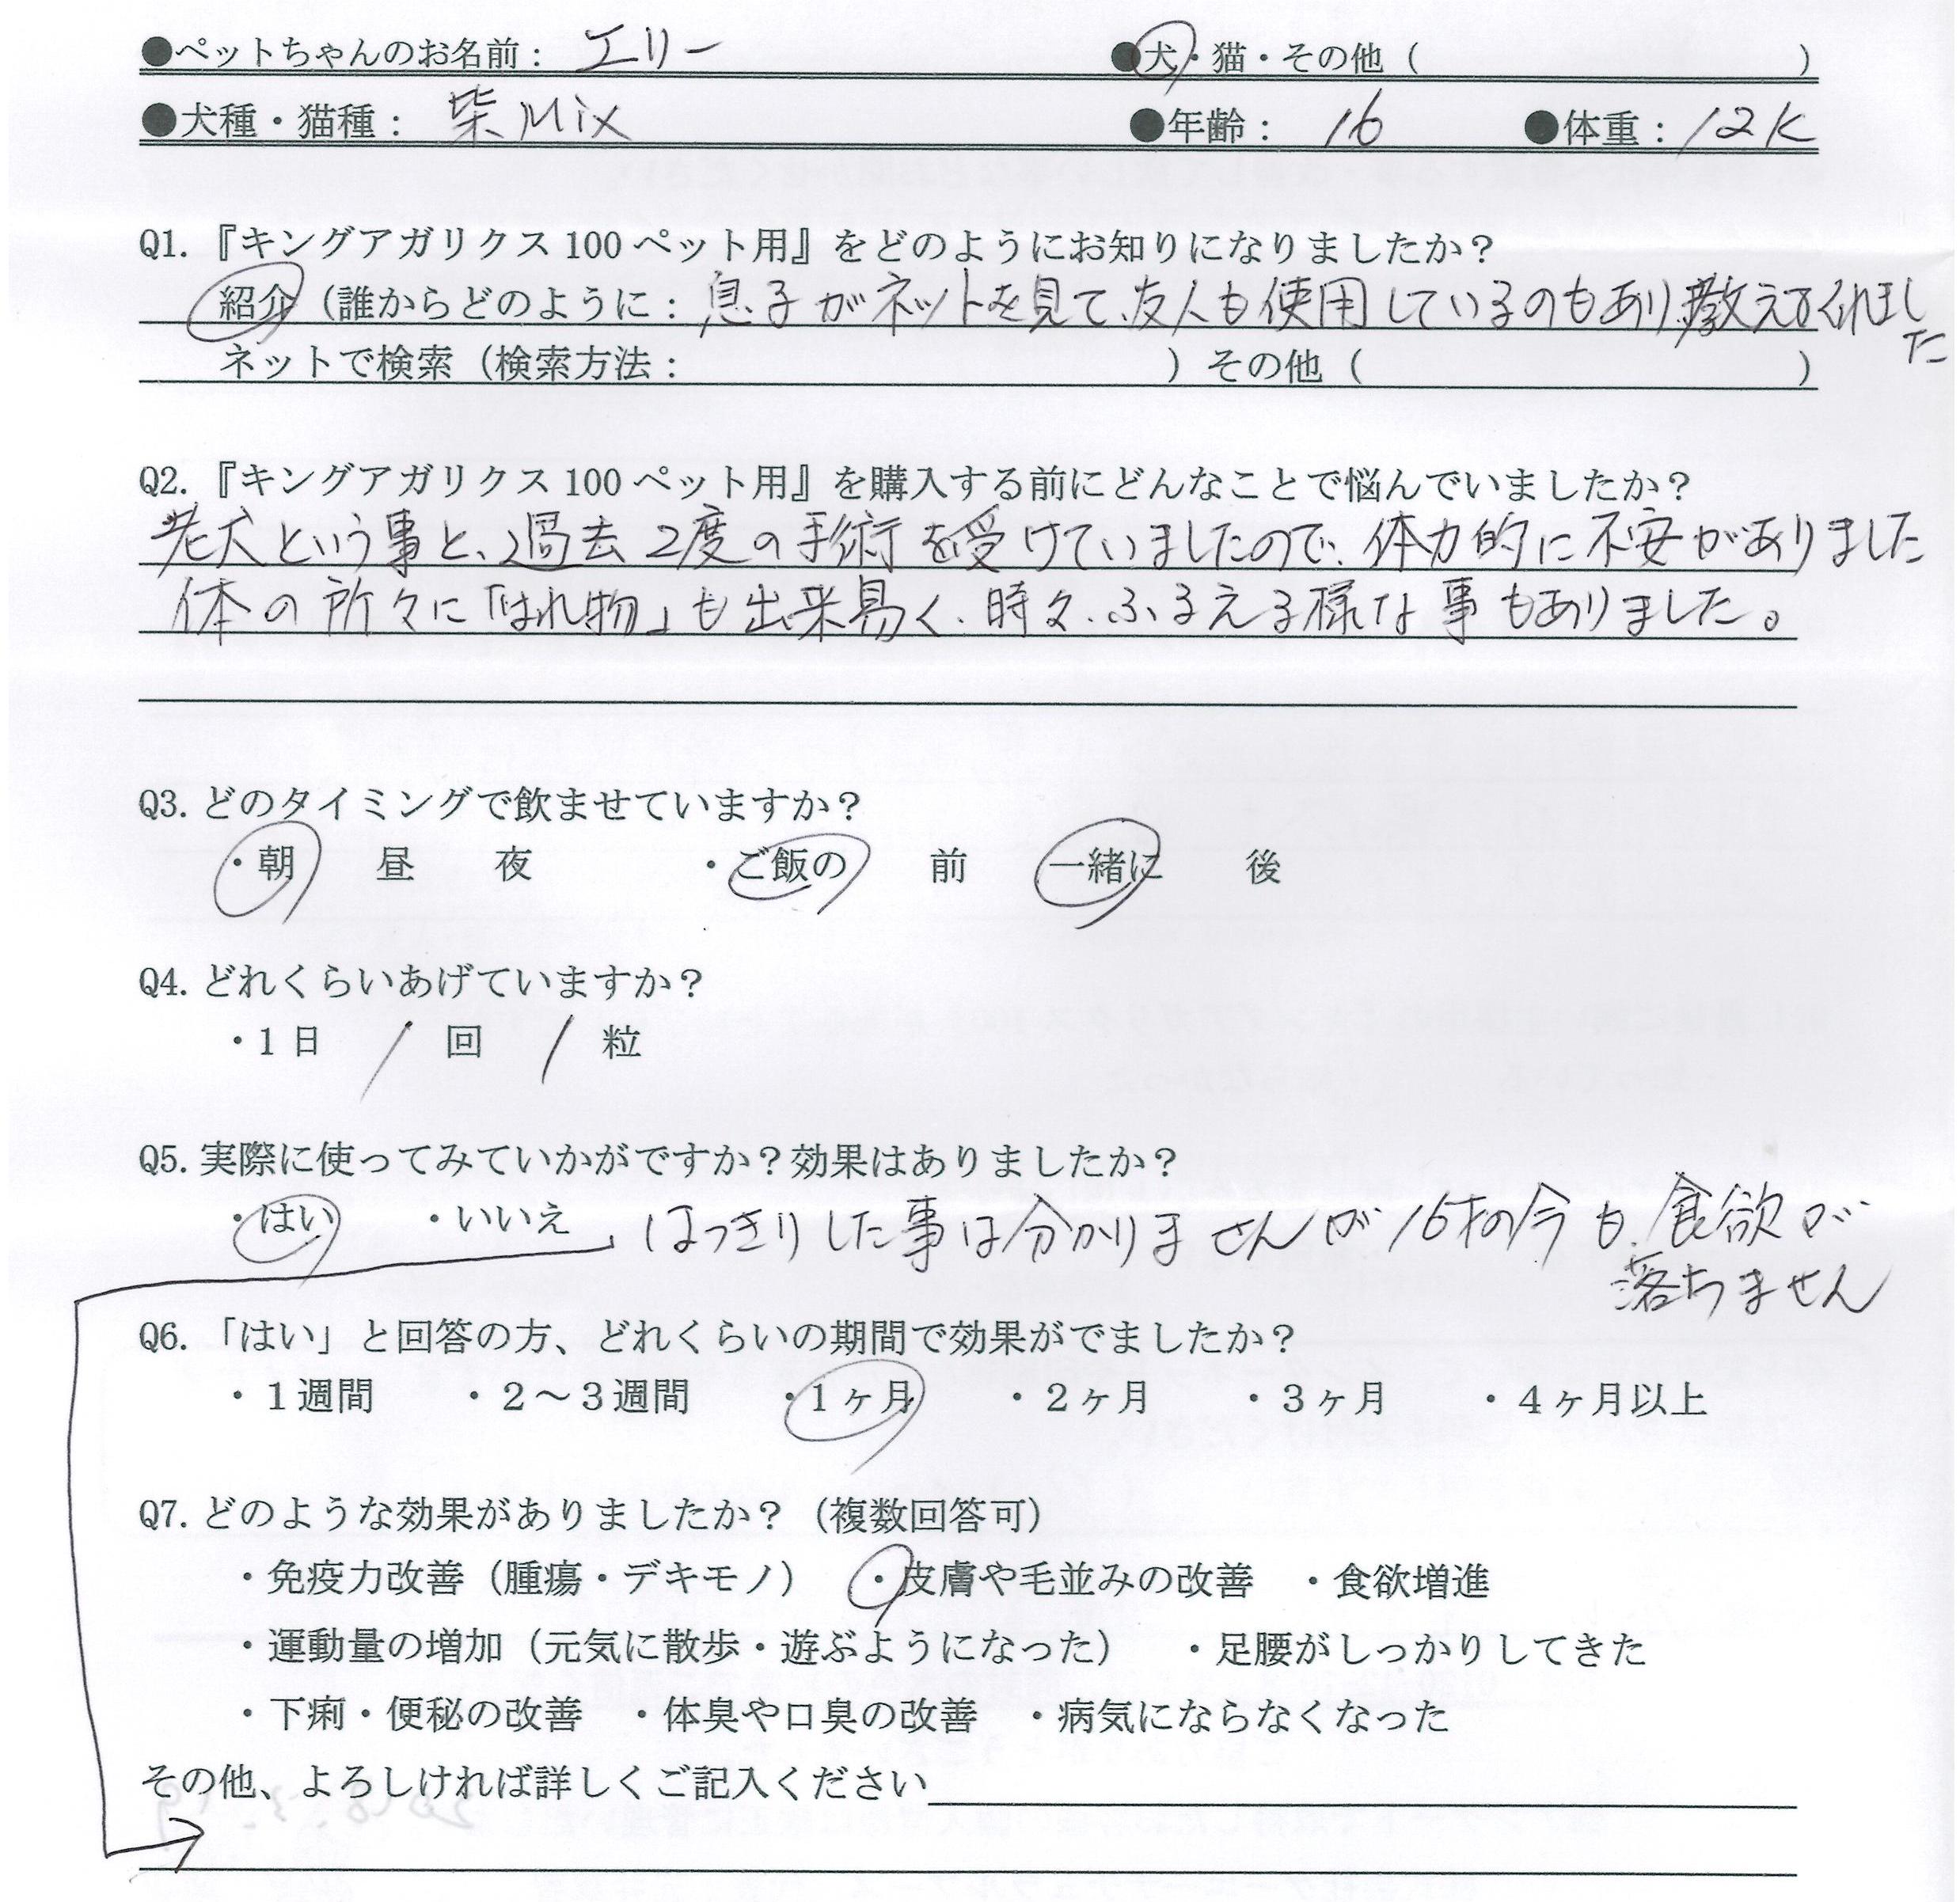 ●ペットちゃんのお名前： エリー ●犬・猫・その他（ ）
●犬種・猫種： 柴Mix ●年齢： 16 ●体重：12K
Q1.『キングアガリクス100ペット用』をどのようにお知りになりましたか？
紹介（誰からどのように：息子がネットを見て、友人も使用しているのもあり、教えてくれまし
た
ネットで検索（検索方法： ）その他（ ）
Q2.『キングアガリクス100ペット用』を購入する前にどんなことで悩んでいましたか？
老犬という事と、過去2度の手術を受けていましたので、体力的に不安がありました
体の所々に「はれ物」も出来易く、時々、ふるえる様な事もありました。
Q3.どのタイミングで飲ませていますか？
・朝 昼 夜 ・ご飯の 前 一緒に 後
Q4.どれくらいあげていますか？
・1日 1 回 1 粒
Q5.実際に使ってみていかがですか？効果はありましたか？
・はい ・いいえ はっきりした事は分かりませんが16才の今も、食欲が
落ちません
Q6.「はい」と回答の方、どれくらいの期間で効果がでましたか？
・１週間 ・２～３週間 ・１ヶ月 ・２ヶ月 ・３ヶ月 ・４ヶ月以上
Q7.どのような効果がありましたか？（複数回答可）
・免疫力改善（腫瘍・デキモノ） ・皮膚や毛並みの改善 ・食欲増進
・運動量の増加（元気に散歩・遊ぶようになった） ・足腰がしっかりしてきた
・下痢・便秘の改善 ・体臭や口臭の改善 ・病気にならなくなった
その他、よろしければ詳しくご記入ください